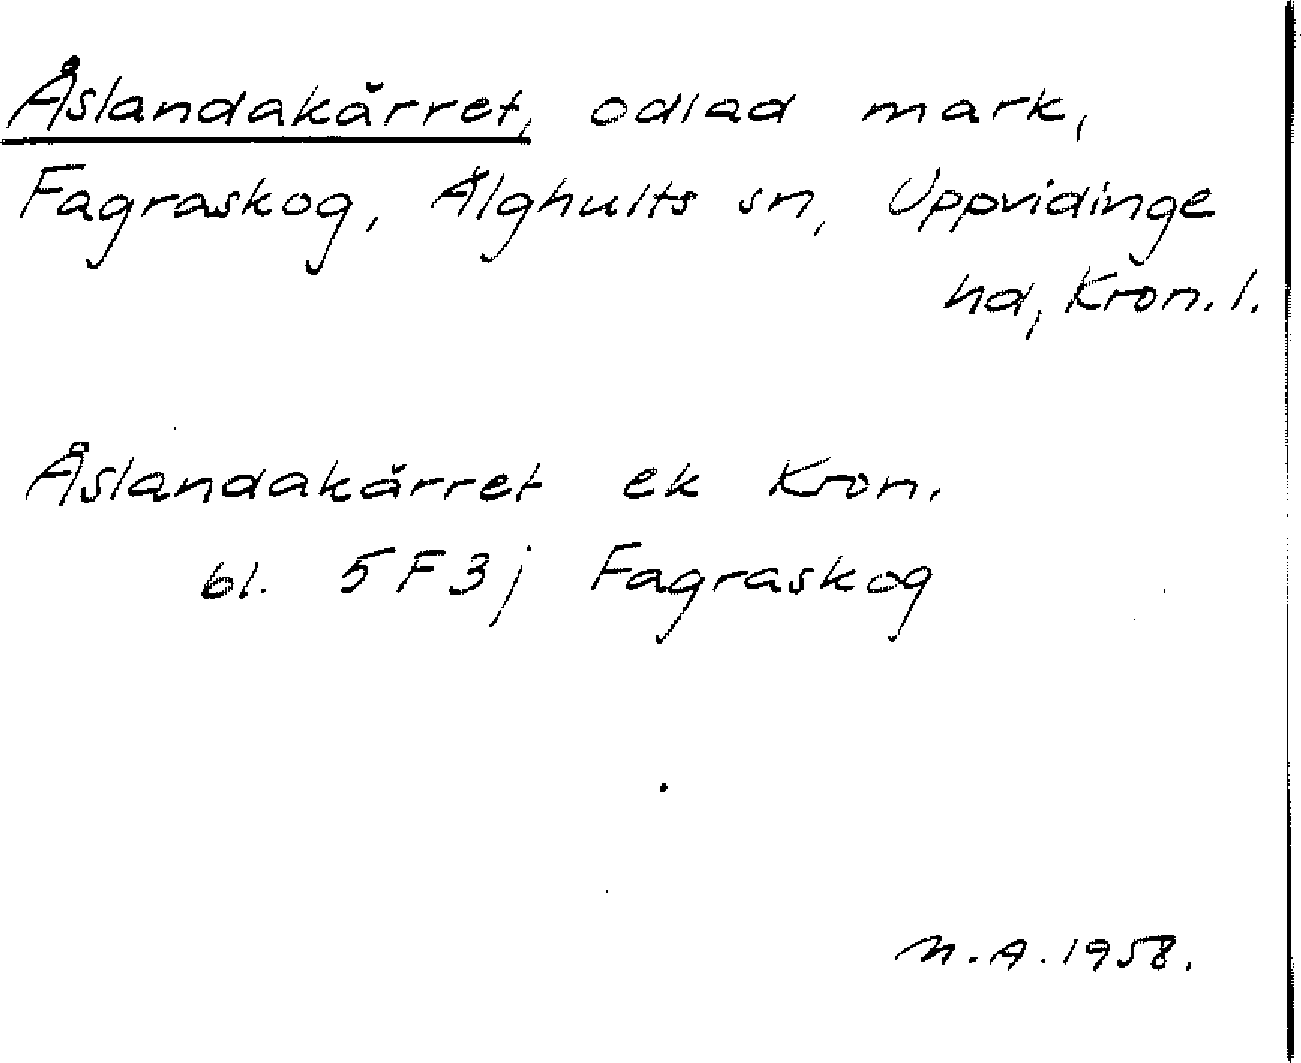 Åslandakärret, odlad mark,
Fagraskog, Älghults sn, Uppvidinge
hd, Kron. l.
Åslandakärret ek Kron.
bl. 5F3j Fagraskog
N.A. 1958.